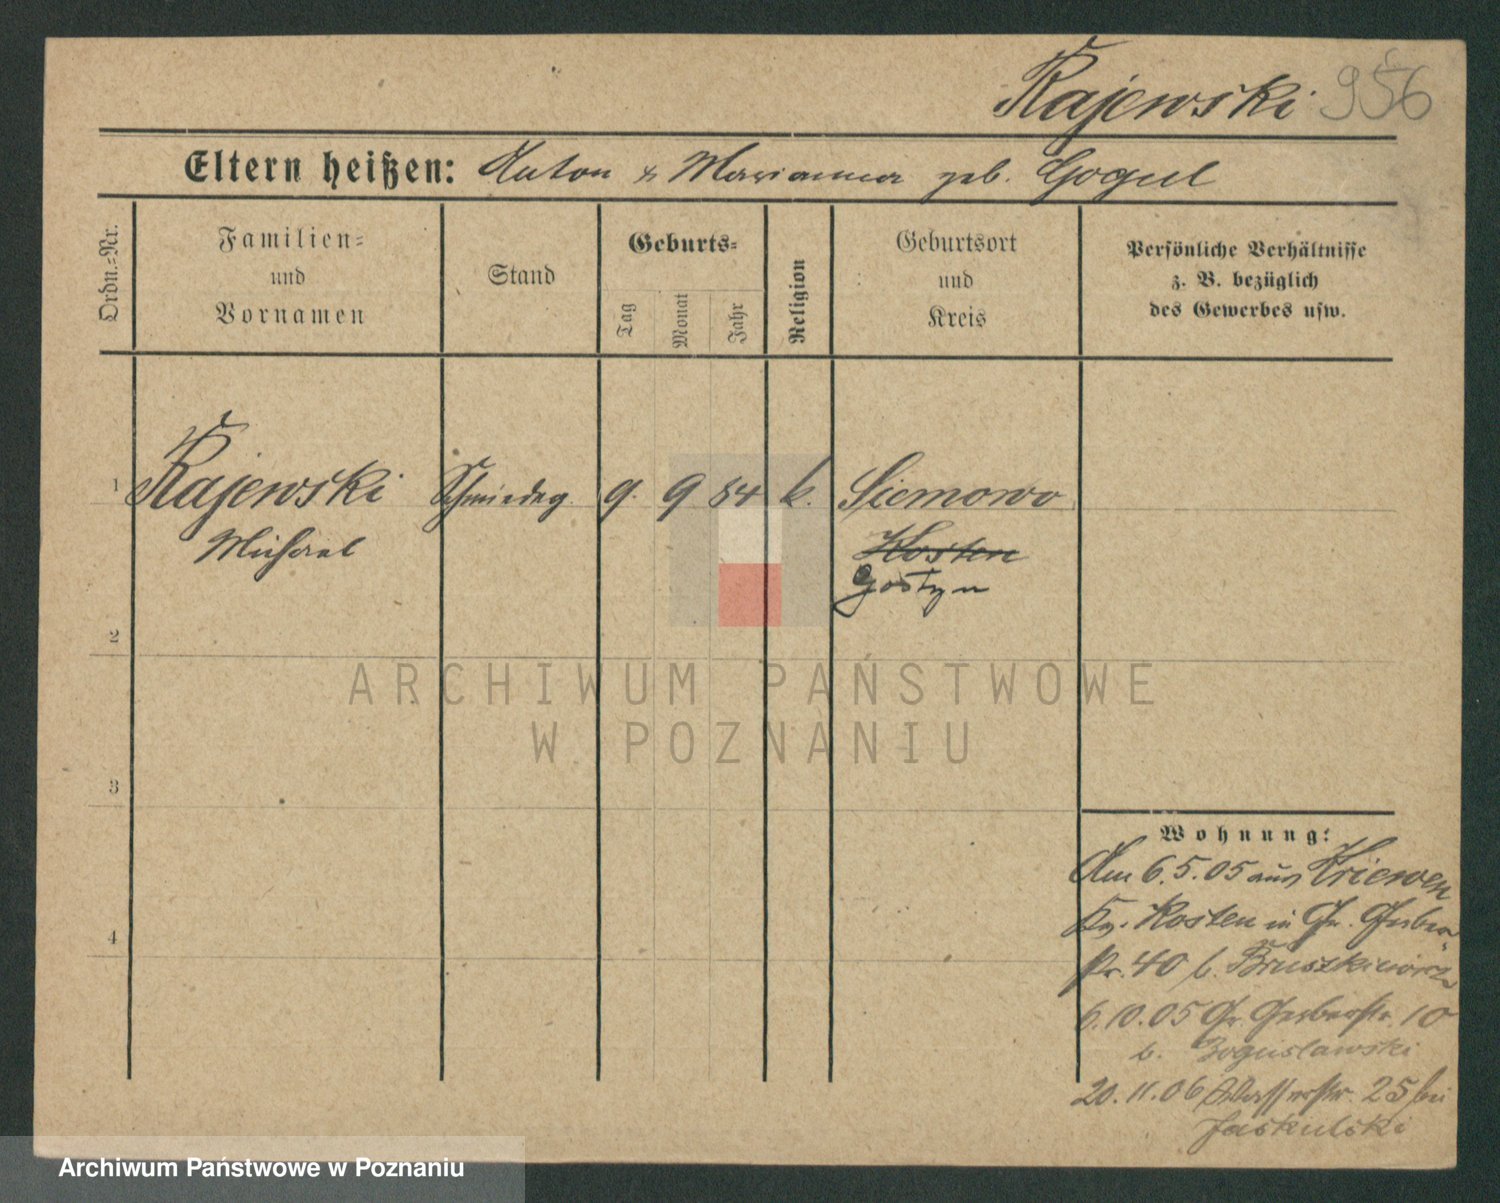 Rajewski 956
Eltern heißen: Anton & Marianna geb. Gogul
Ordn.=Nr.
Familien=
und
Vornamen
Stand
Geburts=
Tag
Monat
Jahr
Religion
Geburtsort
und
Kreis
Persönliche Verhältnisse
z. B. bezüglich
des Gewerbes usw.
1 Rajewski Schmiedeg. 9. 9 84 k. Siemowo
Michael Kosten
Gostyn
2
ARCHIWUM PAŃSTWOWE
W POZNANIU
3
Wohnung:
Am 6.5.05 aus Kriewen
Kr. Kosten in Gr. Gerber
str. 40 b.
6.10.05 Gr. Gerberstr. 10
b. Boguslawski
20.11.06 Wasserstr. 25 bei
Jaskulski
4
Archiwum Państwowe w Poznaniu